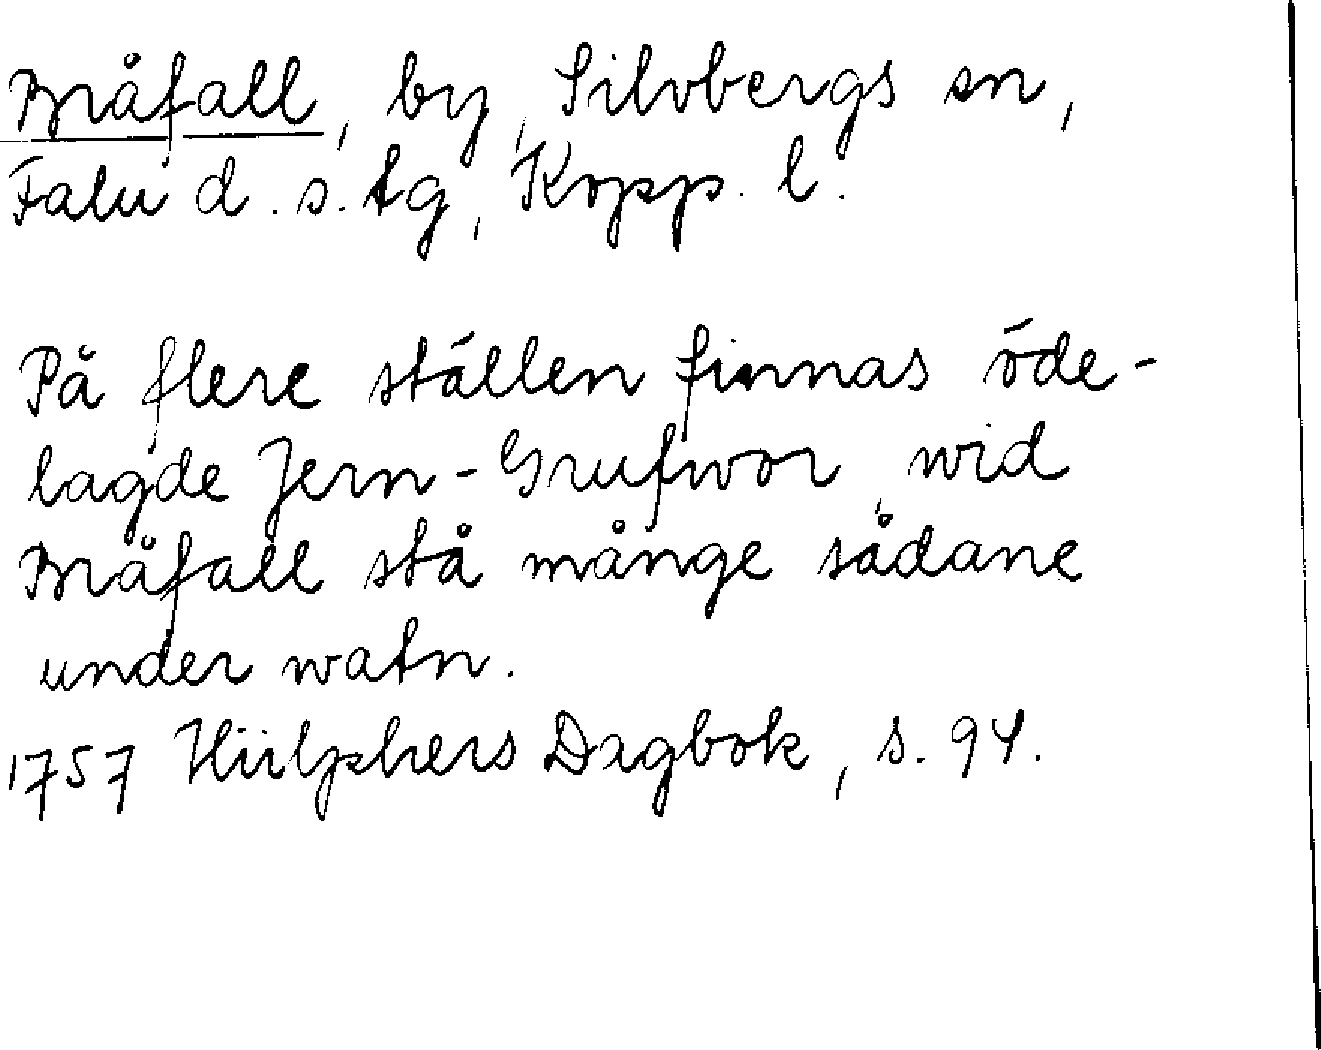 Bråfall, by, Silvbergs sn,
Falu d. s. tg, Kopp. l.
På flere ställen finnas öde-
lagde Jern-Grufwor, wid
Bråfall stå månge sådane
under watn.
1757 Hülphers Dagbok, s. 94.